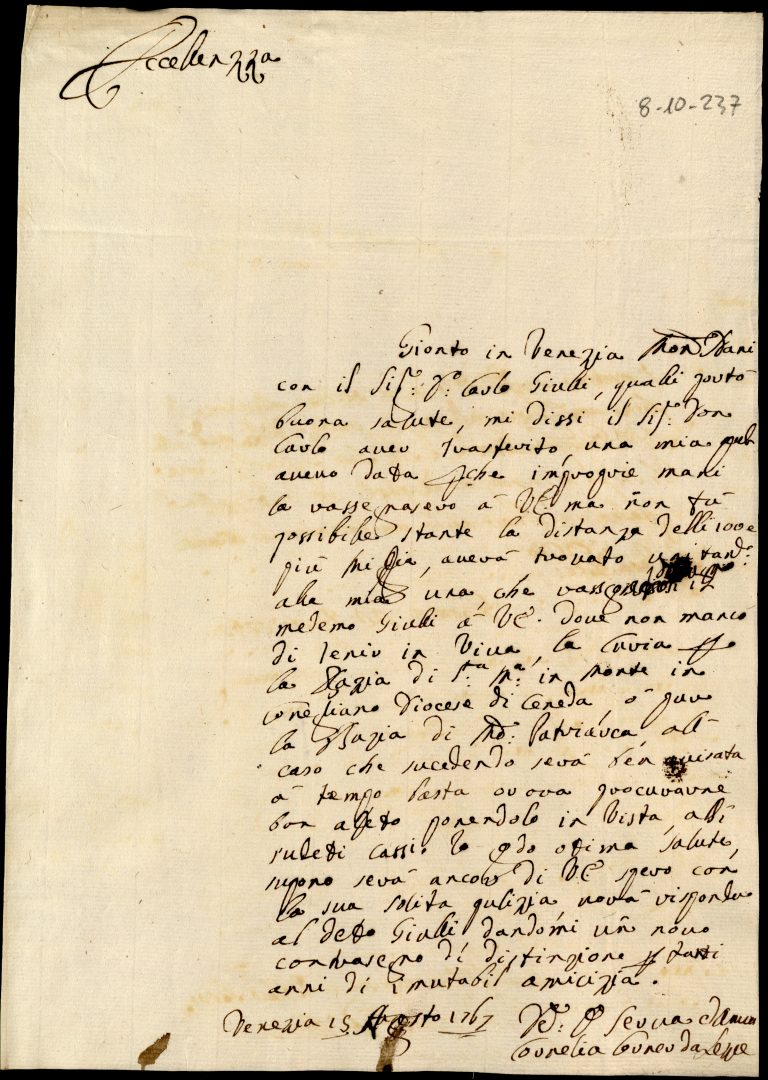 Eccellenzza
8-10-237
Gionto in Venezia
con il Sigr: Dn: Carlo Giulli, qualli portò
buona salute, mi dissi il Sigr: Don
Carlo aver trasferito, una mia
avevo data che improprie mani
la rassegnasero à V.E. ma non fù
possibille stante la distanza delli
più miglia, averà trovato
alla mia una, che
medemo Giulli à V.E. dove non manco
di tenir in Viva, la Curia
la Grazia di Sta: Ma: in Monte in
Conegliano Diocese di Ceneda, ò pur
la Grazia di Patriarca, all
caso che sucedendo serà ben avisata
à tempo basta ovova procurarne
bon afeto ponendolo in Vista, alli
sudeti cassi. Io godo otima salute,
supono serà ancor di V.E. spero con
la sua solita pulizzia vorà risponder
al detto Giulli dandomi un novo
contrasegno di distinzione tanti
anni di imutabil amicizzia.
Venezia 15 Agosto 1767
Serva
Cornelia Corner da Lezze